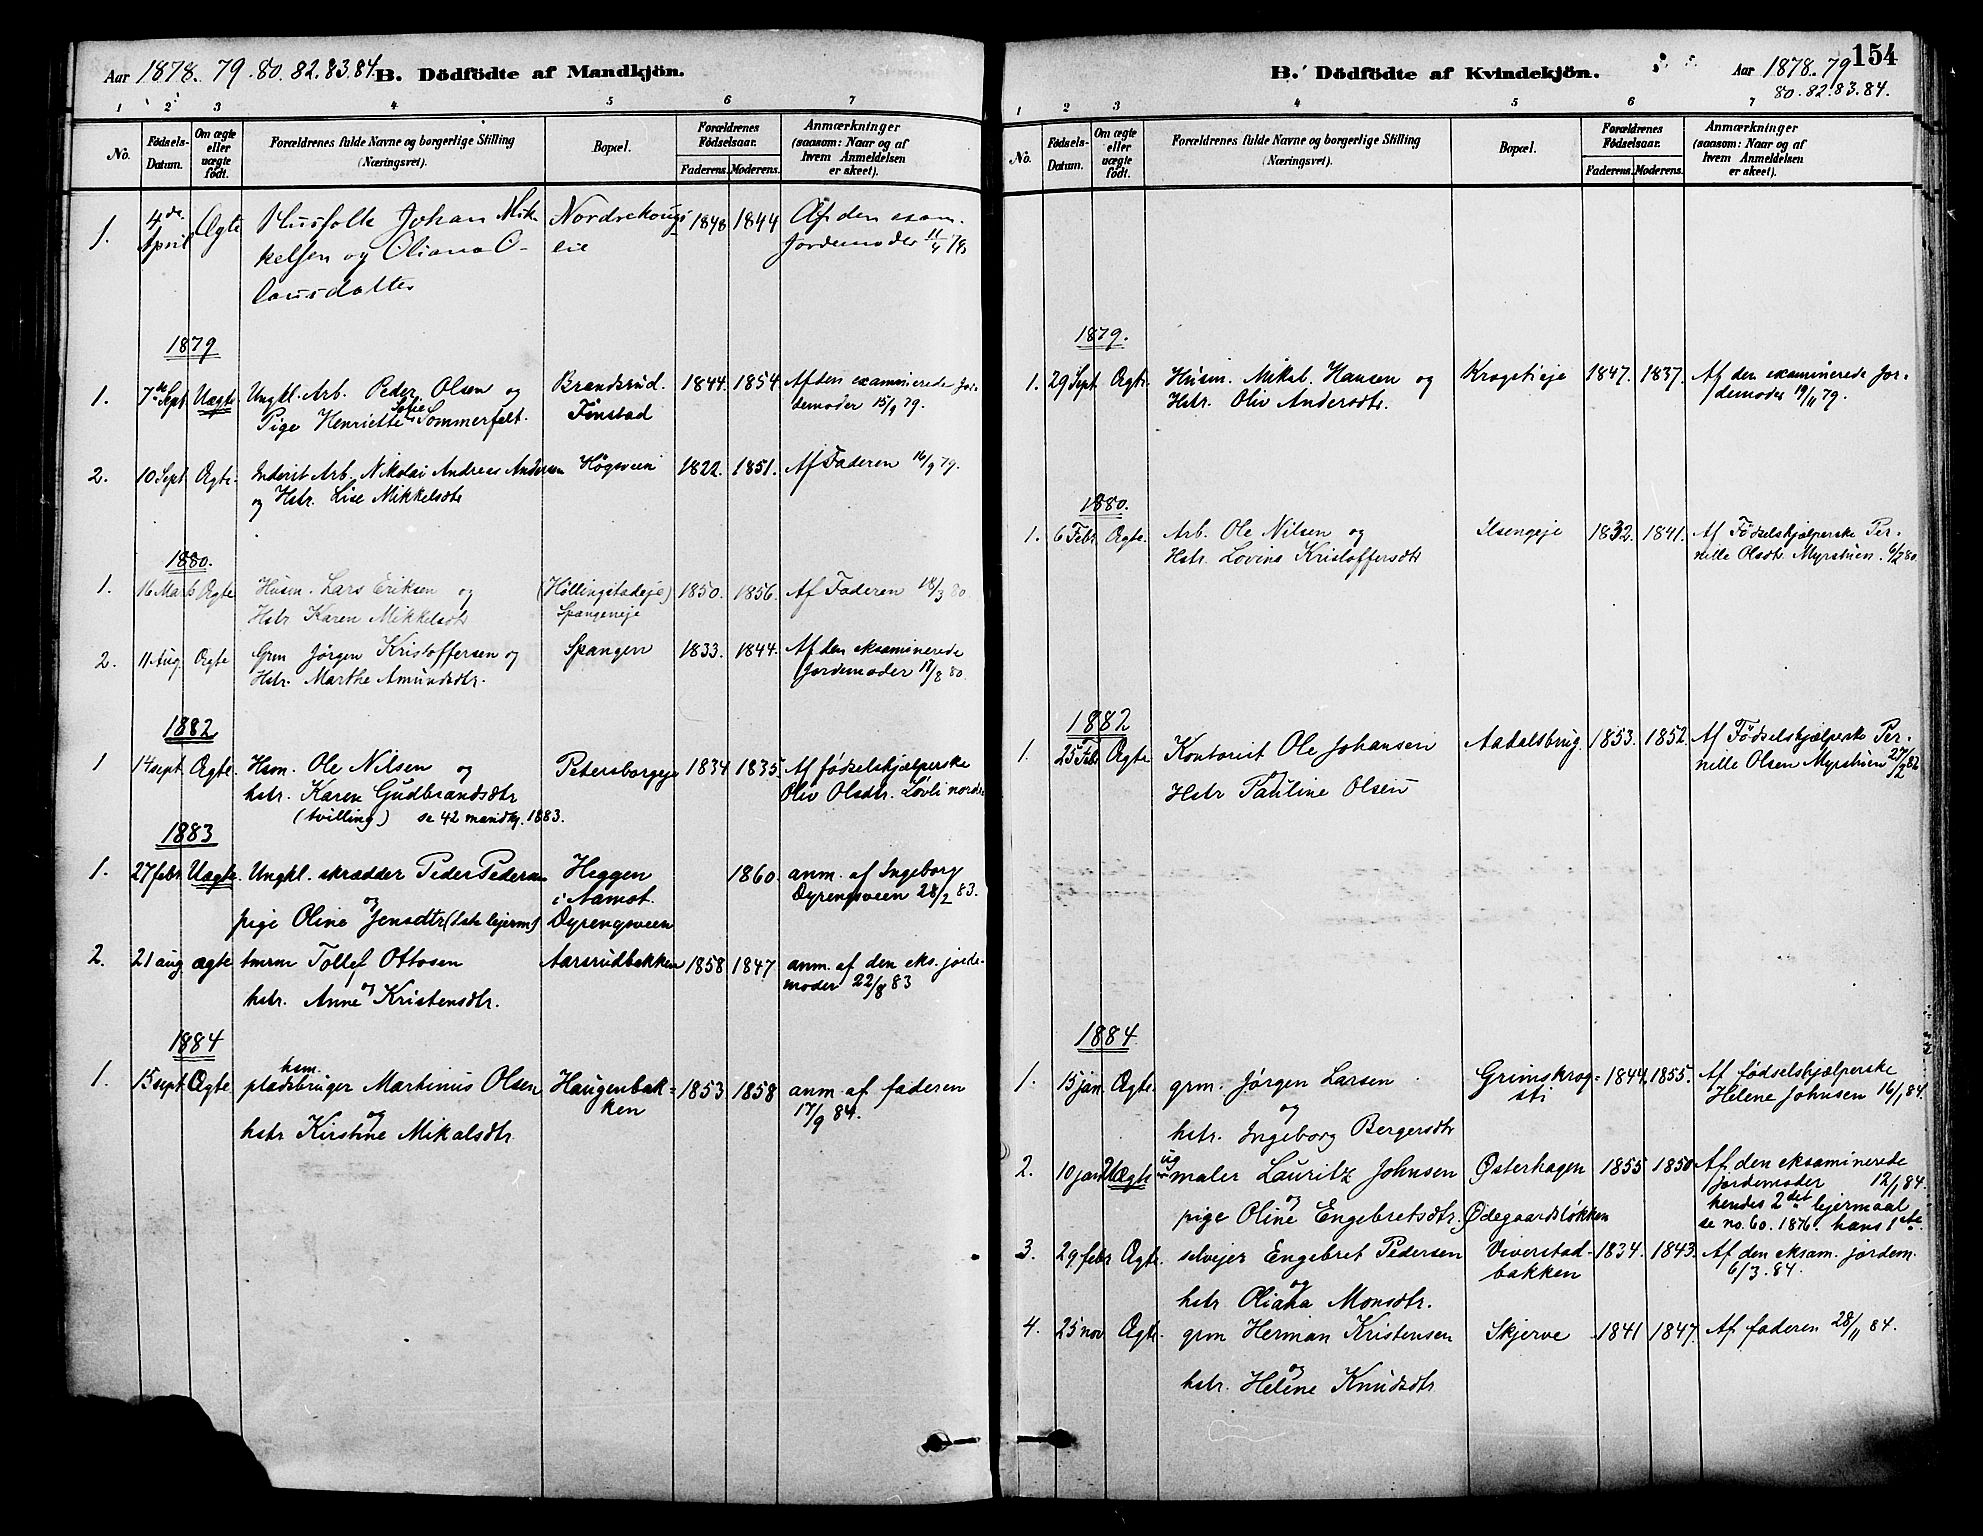 Aar 1878. 79. 80. 82. 83. 84. B. Dödfödte af Mandkjön.
1 2 3 4 5 6 7
No.
Fødsels-Datum.
Om ægte eller uægte født.
Forældrenes fulde Navne og borgerlige Stilling (Næringsvei).
Bopæl.
Forældrenes Fødselsaar.
Faderens. Moderens.
Anmærkninger (saasom: Naar og af hvem Anmeldelsen er skeet).
1. 4de April Ægte Husfolk Johan Mik- 1848 1844 Af den exam.
kelsen og Oliana O- eie Jordemoder 11/4 78
lausdatter
1879
1. 7de Sept Uægte Ungkl. Arb. Peder Olsen og Brandsrud. 1844. 1854. Af den examinerede Jor-
Pige Henriette Sofie Sommerfelt. Finstad demoder 15/9 79.
2. 10 Sept Ægte. Inderst Arb. Nikolai Andreas Andersen Høgsveen 1822. 1851. Af Faderen 16/9 79.
og Hstr. Lise Mikkelsdtr
1880.
1. 16 Marts Ægte Husm. Lars Eriksen og (Høllingstadeje) 1850. 1856. Af Faderen 18/3 80.
Hstr. Karen Mikkelsdtr Spangeneje
2. 11 Aug. Ægte Grm Jørgen Kristoffersen og Spangen 1833. 1844. Af den eksaminerede
Hstr. Marthe Amundsdtr. Jordemoder 17/8 80.
1882
1 14 sept. Ægte. Hsm. Ole Nilsen og Petersborgeje 1834 1835. Af fødselshjælperske
hstr. Karen Gudbrandsdtr Oliv Olsdtr. Løvli nordre
(tvilling) se 42 mandkj. 1883.
1883
1. 27 febr Uægte. Ungkl. skrædder Peder Pedersen Heggen 1860. anm. af Ingeborg
og i Aamot. Dyrengsveen 28/2 83.
pige Oline Jensdtr (1ste lejerm) Dyrengsveen
2. 21 aug ægte tmrm Tollef Ottosen Aarsrudbakken 1858 1847 anm. af den eks. jorde-
og moder 22/8 83
hstr. Anne Kristensdtr.
1884
1. 15 sept. Ægte. hsm. pladsbruger Martinus Olsen Haugenbak- 1853 1858 anm. af faderen
og ken 17/9 84.
hstr Kirstine Mikalsdtr.
B. Dödfödte af Kvindekjön. Aar 1878. 79 154
80. 82. 83. 84.
1 2 3 4 5 6 7
No.
Fødsels-Datum.
Om ægte eller uægte født.
Forældrenes fulde Navne og borgerlige Stilling (Næringsvei).
Bopæl.
Forældrenes Fødselsaar.
Faderens. Moderens.
Anmærkninger (saasom: Naar og af hvem Anmeldelsen er skeet).
1879.
1. 29 Sept. Ægte. Husm. Mikal Hansen og Krogstieje 1847. 1837. Af den examinerede Jor-
Hstr. Oliv Andersdtr. demoder 19/11 79.
1880.
1. 6 Febr. Ægte. Arb. Ole Nilsen og Ilsengeje 1832. 1841. Af Fødselshjælperske Per-
Hstr. Lovina Kristoffersdtr nille Olsdtr Myrstuen. 6/2 80.
1882
1. 25 Feb. Ægte Kontorist Ole Johansen Aadalsbrug 1853. 1852. Af Fødselshjælperske Per-
og nille Olsen Myrstuen 27/2 82
Hstr Pauline Olsen
1884
1. 15 jan. Ægte. grm. Jørgen Larsen Grimskrog- 1844. 1855. Af fødselshjælperske
og sti Helene Johnsen 16/1 84.
hstr. Ingeborg Bergersdtr
2. 10 jan. Uægte ug maler Lauritz Johnsen Østerhagen 1855 1850 Af den eksaminerede
og jordemoder 12/1 84.
pige Oline Engebretsdtr. Ødegaardsløkken hendes 2det lejermaal
se no. 60. 1876. hans 1ste.
3. 29 febr Ægte. selvejer Engebret Pedersen Viverstad- 1834. 1843. Af den eksam. jordem.
og bakken 6/3. 84.
hstr Oliana Monsdtr.
4. 25 nov Ægte. grm Herman Kristensen Skjerve 1841 1847. Af faderen 28/11 84.
og
hstr. Helene Knudsdtr